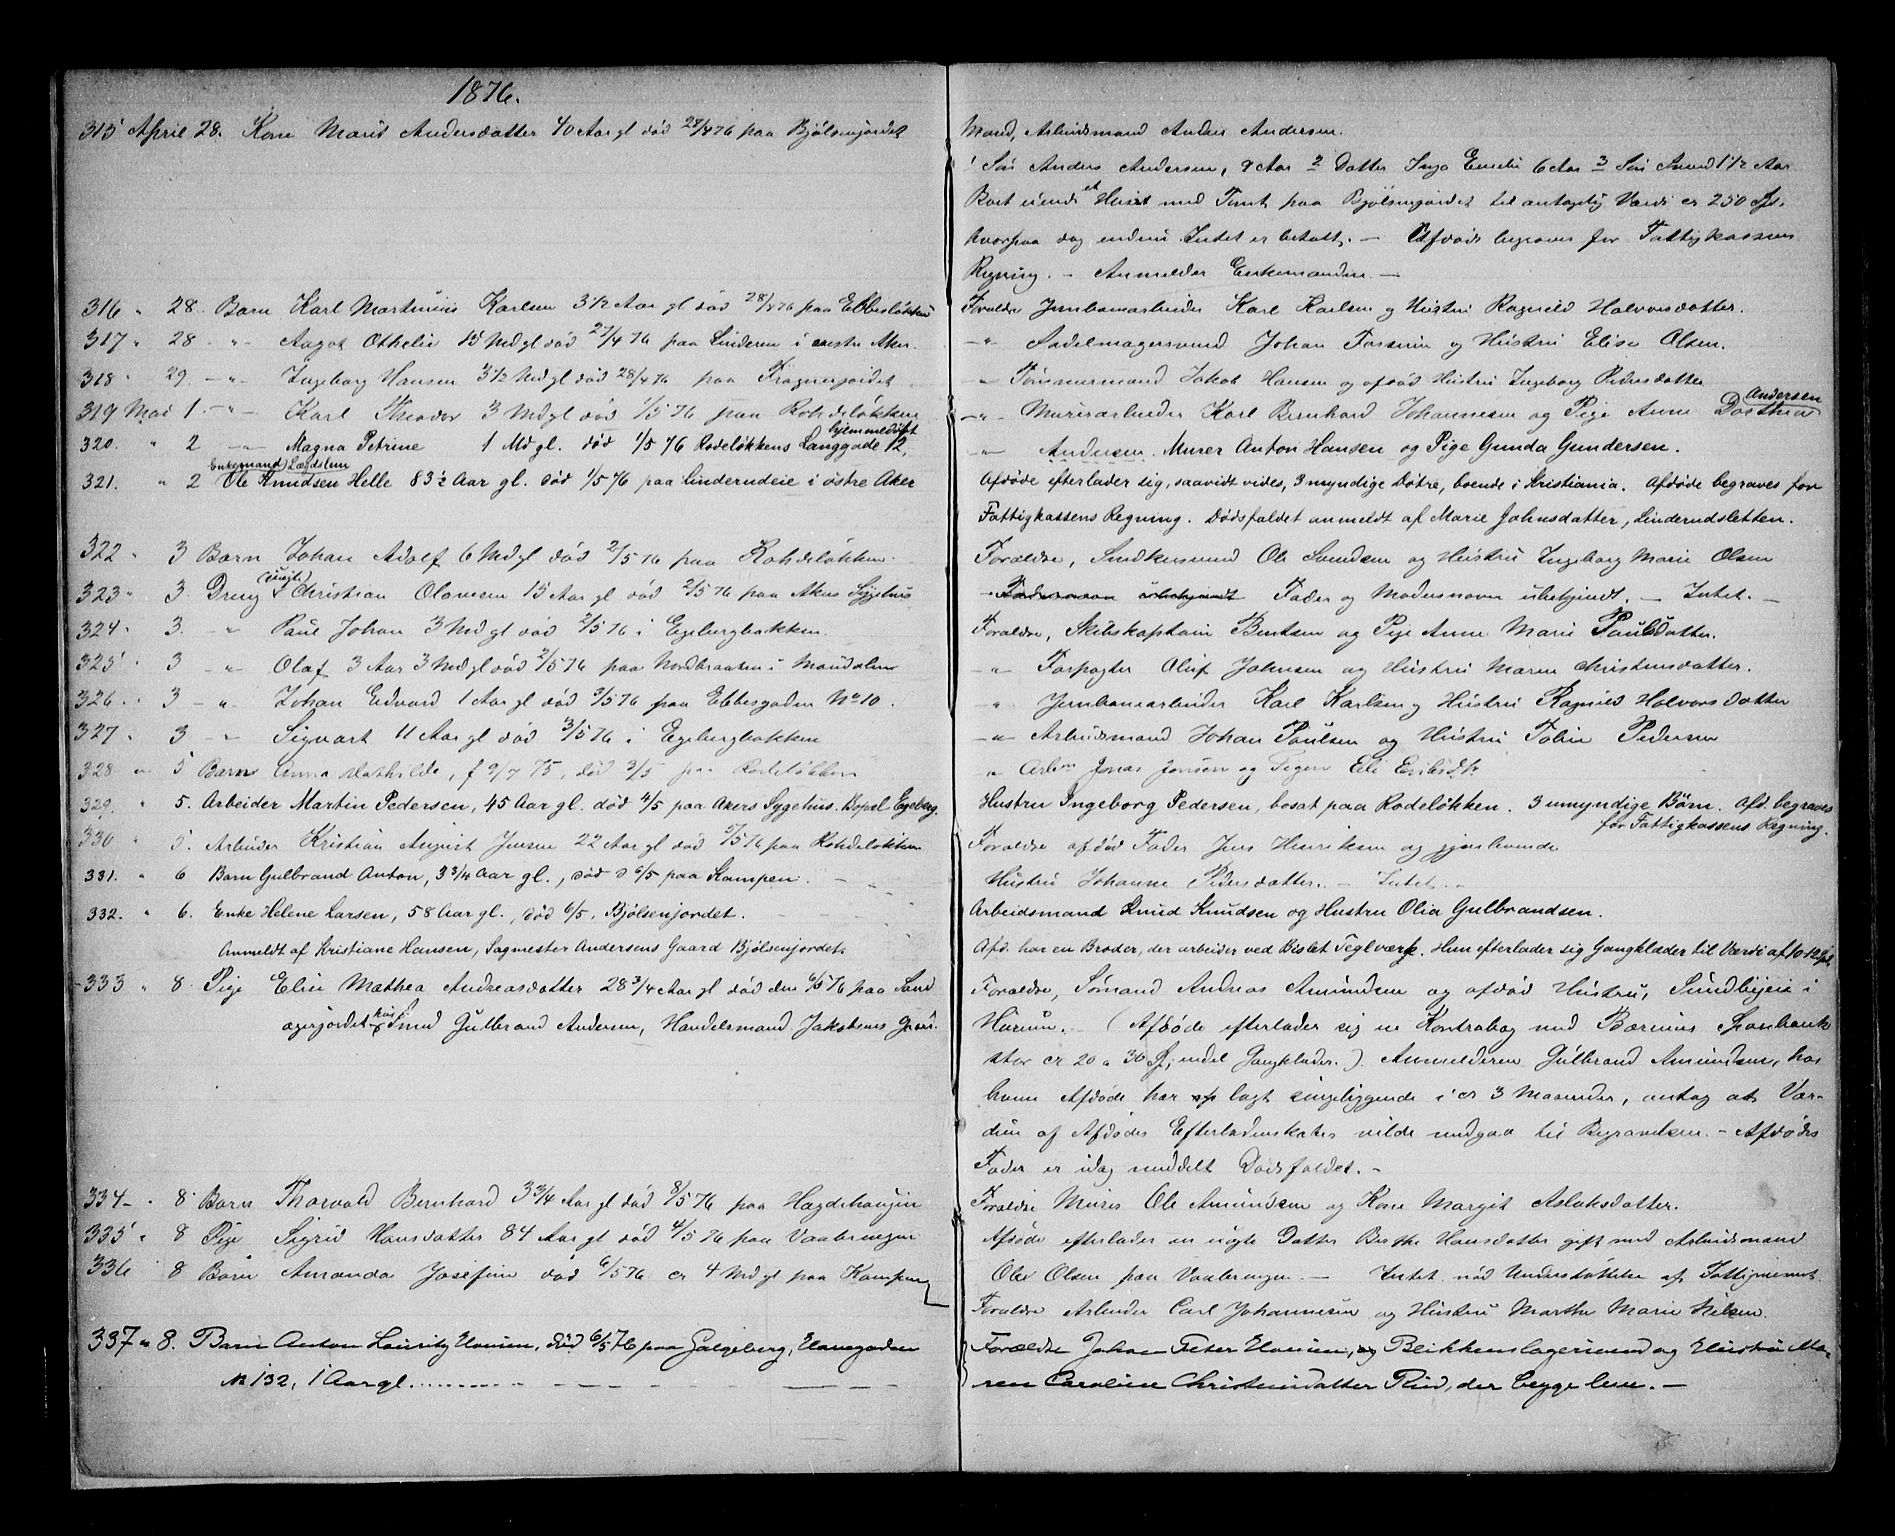 1876.
315 April 28. Kone Marit Andersdatter 40 Aar gl død 28/4 76 paa Bjølsenjordet
316 " 28. Barn Karl Martinius Karlsen 3 1/2 Aar gl død 28/4 76 paa Ebbesløkken
317 " 28 -"- Aagot Othelie 15 Mdgl død 27/4 76 paa Linderen i vestre Aker.
318 " 29. -"- Ingeborg Hansen 3 1/2 Mdgl død 28/4 76 paa Frognerjordet
319 Mai 1. -"- Karl Theodor 3 Mdgl død 1/5 76 paa Rohdeløkken
hjemmedøbt
320. " 2 -"- Magna Petrine 1 Md gl. død 1/5 76 Rodeløkkens Langgade 12,
Enkemand Lægdslem
321. " 2 Ole Knudsen Helle 83 1/2 Aar gl. død 1/5 76 paa Linderudeie i østre Aker
322 " 3 Barn Johan Adolf 6 Mdgl død 2/5 76 paa Rohdeløkken.
323 " 3. Dreng (uægte) Christian Olavesen 15 Aar gl død 2/5 76 paa Akers Sygehus
324 " 3. " Paul Johan 3 Mdgl død 2/5 76 i Egebergbakken.
325 " 3 " Olaf 3 Aar 3 Mdgl død 2/5 76 paa Nordbraaten i Maridalen
326 " 3 -"- Johan Edvard 1 Aar gl død 3/5 76 paa Ebbesgaden No 10.
327 " 3 -"- Sigvart 11 Aar gl død 3/5 76 i Egebergbakken
328 " 5 Barn Anna Mathilde, f 9/7 75, død 3/5 paa Rodeløkken
329. " 5. Arbeider Martin Pedersen, 45 Aar gl. død 4/5 paa Akers Sygehus. Bopæl Egeberg.
330 " 5. Arbeider Kristian August Jensen 22 Aar gl død 5/5 76 paa Rohdeløkken
331. " 6 Barn Gulbrand Anton, 3 3/4 Aar gl., død 6/5 paa Kampen.
332. " 6. Enke Helene Larsen, 58 Aar gl., død 6/5. Bjølsenjordet.
Anmeldt af Kristiane Hansen, Sagmester Andersens Gaard Bjølsenjordet.
333 " 8. Pige Elise Mathea Andreasdatter 28 3/4 Aar gl død den 6/5 76 paa Sand
agerjordet hos Smed Gulbrand Andersen, Handelsmand Jakobsens Gaard.
334 - " 8 Barn Thorvald Bernhard 3 3/4 Aar gl død 8/5 76 paa Hægdehaugen
335 " 8 Pige Sigrid Hansdatter 84 Aar gl død 4/5 76 paa Vaalerengen
336 8 Barn Amanda Josefine død 6/5 76 cr 4 Mdgl paa Kampen
337 " 8. Barn Anton Lauritz Hansen, død 6/5 76 paa Galgeberg, Hovegaden
No 132, 1 Aar gl.
Mand, Arbeidsmand Anders Andersen.
1 Søn Anders Andersen, 9 Aar 2 Datter Inga Emilie 6 Aar 3 Søn Amund 1 1/2 Aar
Boet eiende et Huset med Tomt paa Bjølsenjordet til antagelig Værdi cr 250 Spd.
hvorpaa dog endnu Intet er betalt. - Afdøde begraves for Fattigkassens
Regning. - Anmelder Enkemanden. -
Forældre Jernbanearbeider Karl Karlsen og Hustru Ragnild Halvorsdatter.
-"- Sadelmagersvend Johan og Hustru Elise Olsen.
-"- Tømmermand Jakob Hansen og afdød Hustru Ingeborg Pedersdatter
Andersen
-"- Murerarbeider Karl Bernhard Johannesen og Pige Anne Dorthea
-"- Andersen. Murer Anton Hansen og Pige Gunda Gundersen.
Afdøde efterlader sig, saavidt vides, 3 myndige Døtre, boende i Kristiania. Afdøde begraves for
Fattigkassens Regning. Dødsfaldet anmeldt af Marie Johnsdatter, Linderudsletten.
Forældre, Snedkersvend Ole Svendsen og Hustru Ingeborg Marie Olsen
Fadernavn ubekjendt Fader og Modersnavn ubekjendt. - Intet. -
Forældre, Skibskaptain Bentsen og Pige Anne Marie Paulsdatter.
-"- Forpagter Oluf Johnsen og Hustru Maren Christensdatter.
" Jernbanearbeider Karl Karlsen og Hustru Ragnild Halvorsdatter
-"- Arbeidsmand Johan Paulsen og Hustru Toline Pedersen
" Arbm Jonas Jensen og Pigen Eli Eriksdtr
Hustru Ingeborg Pedersen, bosat paa Rodeløkken. 3 umyndige Børn. Afd. begraves
for Fattigkassens Regning.
Forældre afdød Fader Jens Henriksen og gjenlevende
Hustru Johanne Pedersdatter. - Intet. -
Arbeidsmand Knud Knudsen og Hustru Olia Gulbrandsen.
Afd. har en Broder, der arbeider ved Bislet Teglværk. Hun efterlader sig Gangklæder til Værdi af 10-12 Spd.
Forældre, Sømand Andreas Amundsen og afdød Hustru, Sundbyeie i
Hurum. - (Afdøde efterlader sig en Kontrabog med Bærums Sparebank
stor cr 20 a 30 Spd, endel Gangklæder.). Anmelderen Gulbrand Amundsen, hos
hvem Afdøde har lagt sengeliggende i cr 3 Maaneder, antog at Vær-
dien af Afdødes Efterladenskaber vilde medgaa til Begravelsen. - Afdødes
Fader er idag meddelt Dødsfaldet. -
Forældre Murer Ole Amundsen og Kone Margit Aslaksdatter.
Afdøde efterlader en uægte Datter Berthe Hansdatter gift med Arbeidsmand
Ole Olsen paa Vaalerengen. - Intet. nød Understøttelse af Fattigvæsenet.
Forældre Arbeider Carl Johannesen og Hustru Marthe Marie Nilsen.
Forældre Johan Peter Hansen, og Blikkenslagersvend og Hustru Ma-
ren Caroline Christensdatter Rud, der begge leve. -